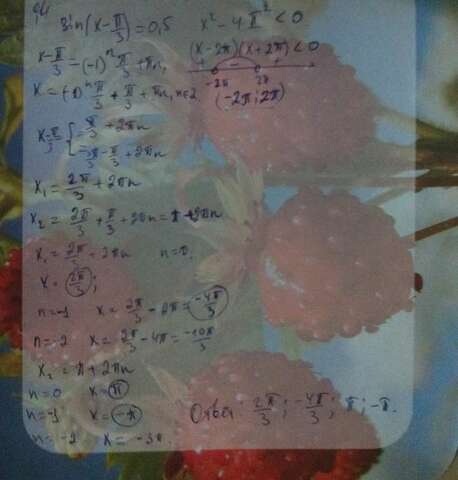 sin(x-π/3)=0,5 x²-4π²<0
x-π/3=(-1)ⁿπ/3+πn, (x-2π)(x+2π)<0
x=(-1)ⁿπ/3+π/3+πn, n∈Z + - +
-2π 2π
(-2π; 2π)
x-π/3 { =π/3+2πn
=π-π/3+2πn
x₁=2π/3+2πn
x₂=2π/3+π/3+2πn=π+2πn
x₁=2π/3+2πn n=0.
x=2π/3;
n=-1 x=2π/3-2π=-4π/3
n=-2 x=2π/3-4π=-10π/3
x₂=π+2πn
n=0 x=π
n=-1 x=-π Ответ: 2π/3; -4π/3; π; -π.
n=-2 x=-3π.